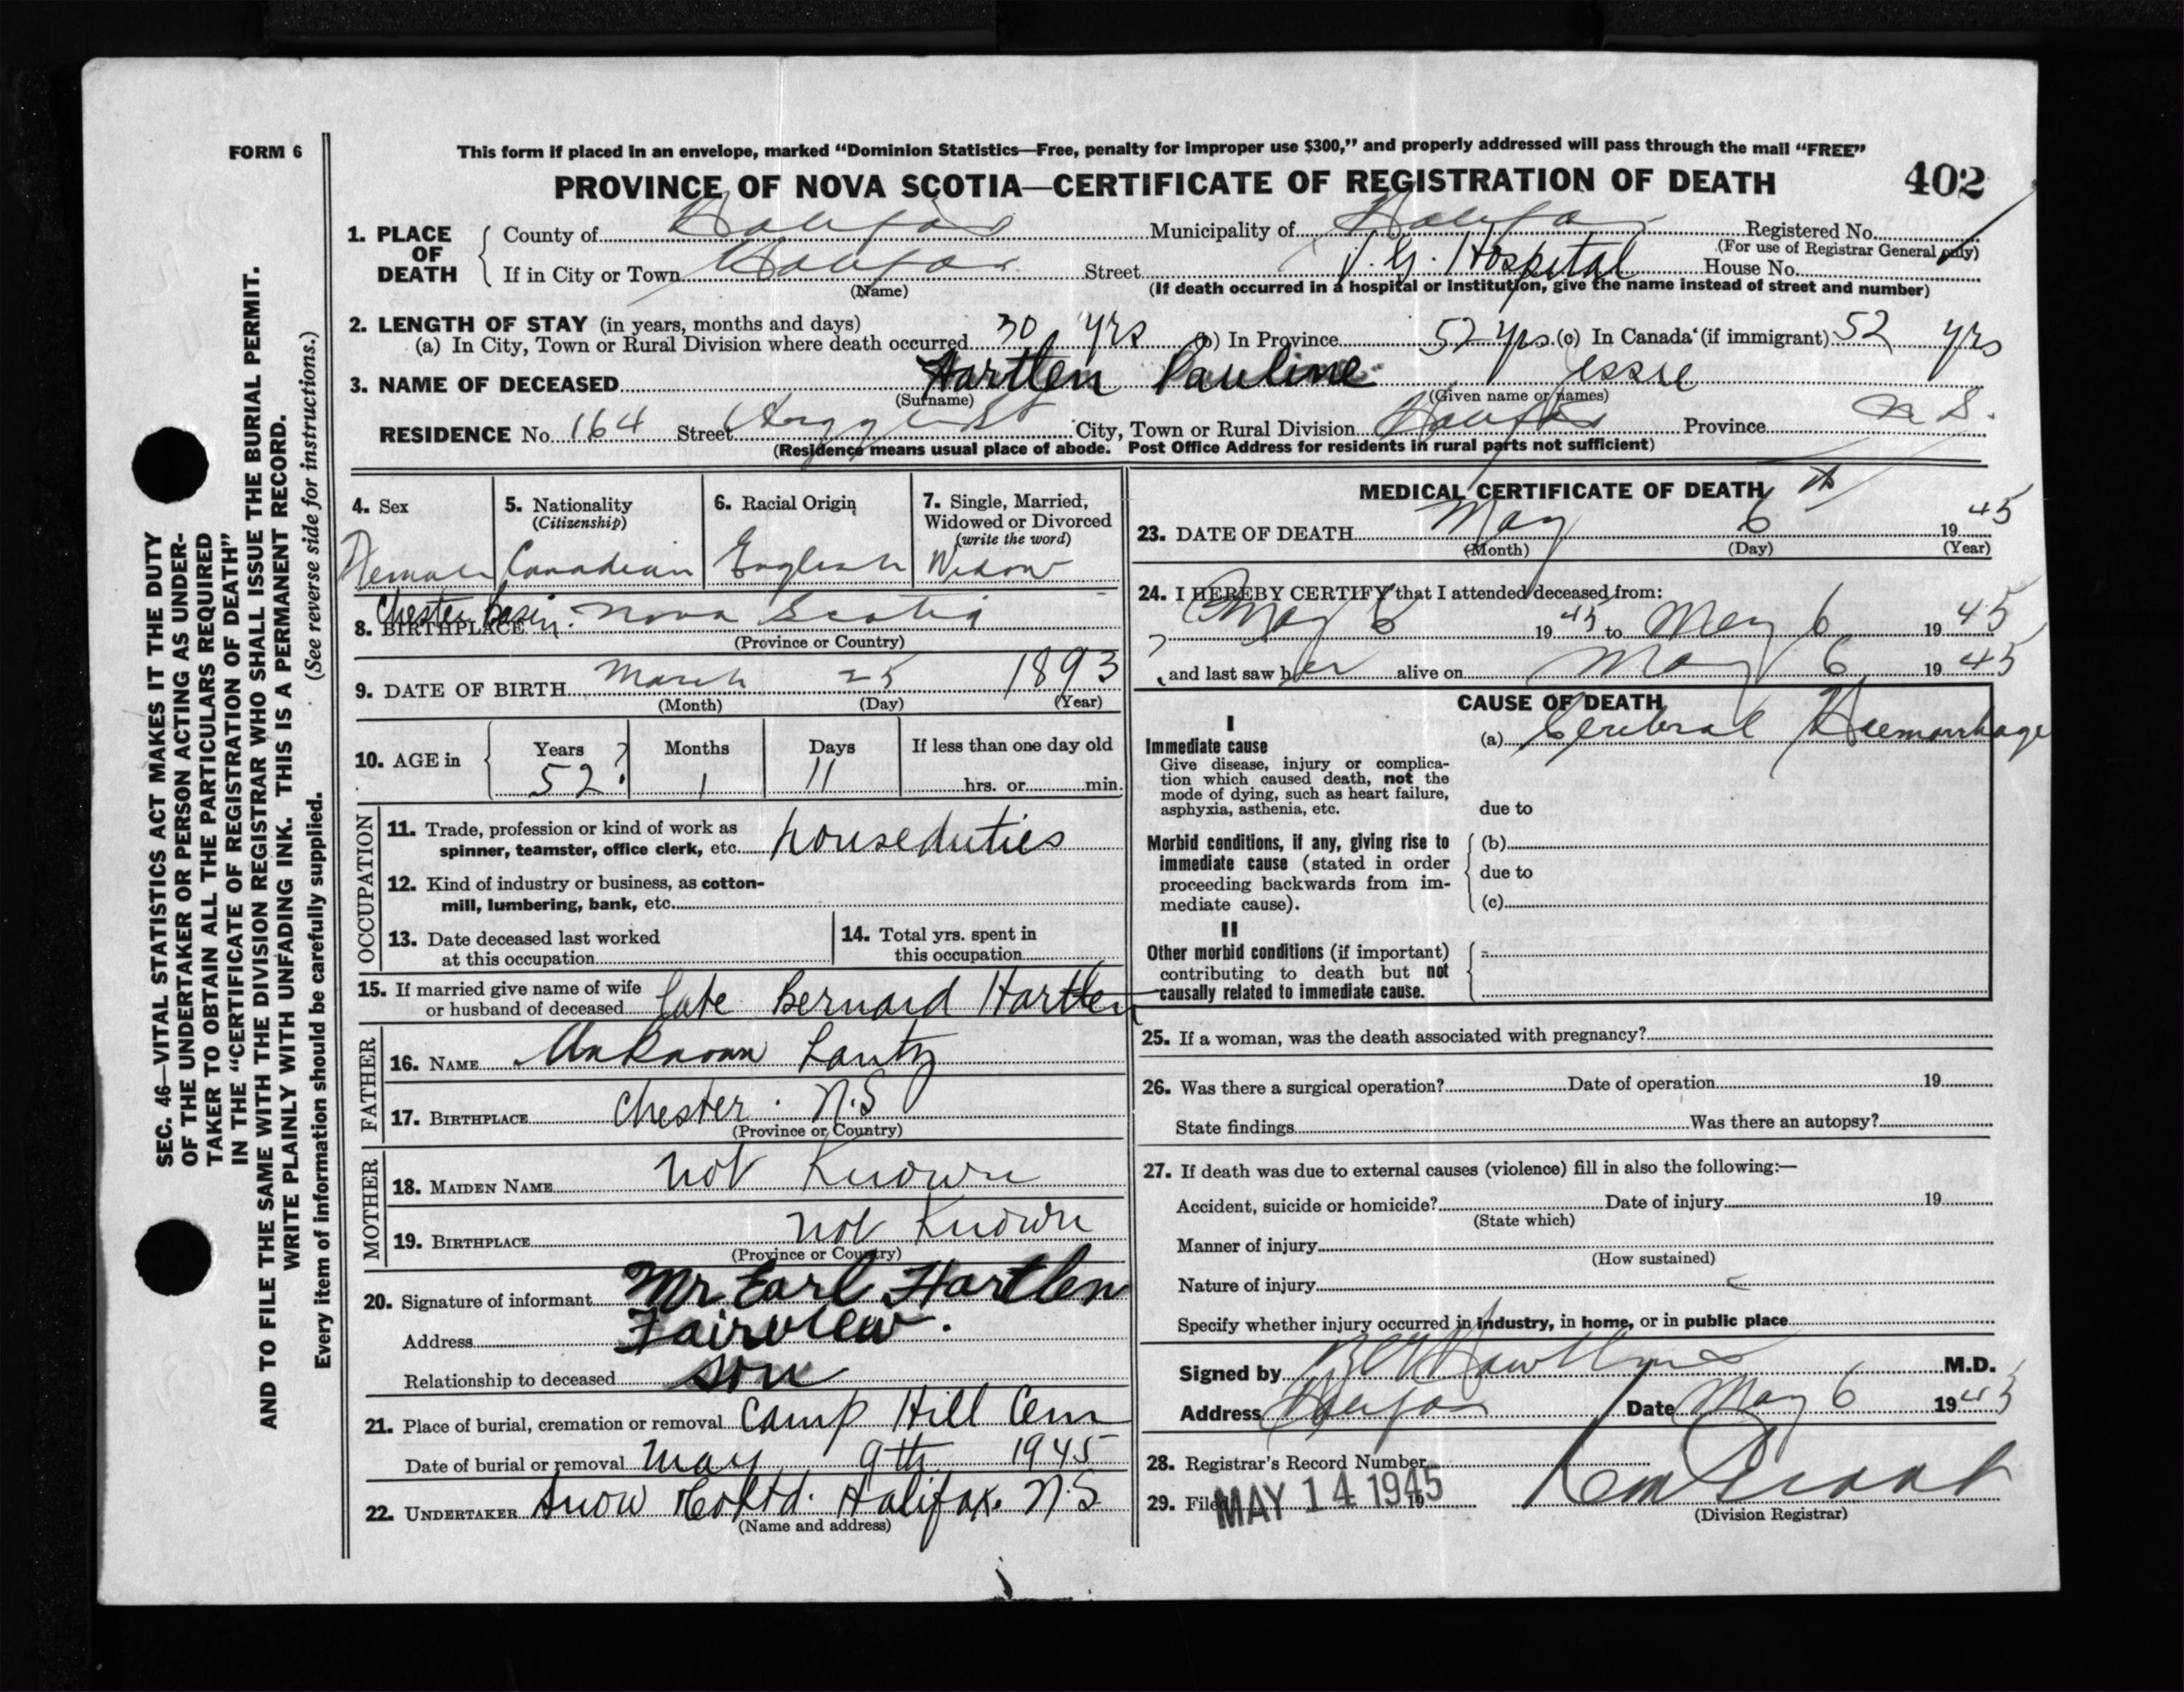 FORM 6
This form if placed in an envelope, marked “Dominion Statistics—Free, penalty for improper use $300,” and properly addressed will pass through the mail “FREE”
PROVINCE OF NOVA SCOTIA—CERTIFICATE OF REGISTRATION OF DEATH 402
SEC. 46—VITAL STATISTICS ACT MAKES IT THE DUTY
OF THE UNDERTAKER OR PERSON ACTING AS UNDER-
TAKER TO OBTAIN ALL THE PARTICULARS REQUIRED
IN THE “CERTIFICATE OF REGISTRATION OF DEATH”
AND TO FILE THE SAME WITH THE DIVISION REGISTRAR WHO SHALL ISSUE THE BURIAL PERMIT.
WRITE PLAINLY WITH UNFADING INK. THIS IS A PERMANENT RECORD.
Every item of information should be carefully supplied. (See reverse side for instructions.)
1. PLACE OF DEATH
County of Halifax Municipality of Halifax Registered No.
(For use of Registrar General only)
If in City or Town Halifax Street V. G. Hospital House No.
(Name) (If death occurred in a hospital or institution, give the name instead of street and number)
2. LENGTH OF STAY (in years, months and days)
(a) In City, Town or Rural Division where death occurred 30 yrs (b) In Province 52 yrs (c) In Canada (if immigrant) 52 yrs
3. NAME OF DECEASED Hartlen Pauline Jessie
(Surname) (Given name or names)
RESIDENCE No. 164 Street City, Town or Rural Division Halifax Province N S.
(Residence means usual place of abode. Post Office Address for residents in rural parts not sufficient)
4. Sex
Female
5. Nationality
(Citizenship)
Canadian
6. Racial Origin
English
7. Single, Married,
Widowed or Divorced
(write the word)
Widow
8. BIRTHPLACE Chester Basin. Nova Scotia
(Province or Country)
9. DATE OF BIRTH March 25 1893
(Month) (Day) (Year)
10. AGE in Years Months Days If less than one day old
52? 1 11 hrs. or min.
OCCUPATION
11. Trade, profession or kind of work as
spinner, teamster, office clerk, etc. houseduties
12. Kind of industry or business, as cotton-
mill, lumbering, bank, etc.
13. Date deceased last worked
at this occupation
14. Total yrs. spent in
this occupation
15. If married give name of wife
or husband of deceased late Bernard Hartlen
FATHER
16. NAME Unknown Lantz
17. BIRTHPLACE Chester. N.S
(Province or Country)
MOTHER
18. MAIDEN NAME not Known
19. BIRTHPLACE not Known
(Province or Country)
20. Signature of informant Mr Earl Hartlen
Address Fairview.
Relationship to deceased son
21. Place of burial, cremation or removal Camp Hill Cem
Date of burial or removal May 9th 1945
22. UNDERTAKER Snow & Co Ltd. Halifax. N.S
(Name and address)
MEDICAL CERTIFICATE OF DEATH
23. DATE OF DEATH May 6th 1945
(Month) (Day) (Year)
24. I HEREBY CERTIFY that I attended deceased from:
May 6 1945 to May 6 1945
and last saw her alive on May 6 1945
CAUSE OF DEATH
I
Immediate cause
Give disease, injury or complica-
tion which caused death, not the
mode of dying, such as heart failure,
asphyxia, asthenia, etc.
(a) Cerebral Haemorrhage
due to
Morbid conditions, if any, giving rise to
immediate cause (stated in order
proceeding backwards from im-
mediate cause).
(b)
due to
(c)
II
Other morbid conditions (if important)
contributing to death but not
causally related to immediate cause.
25. If a woman, was the death associated with pregnancy?
26. Was there a surgical operation? Date of operation 19
State findings Was there an autopsy?
27. If death was due to external causes (violence) fill in also the following:—
Accident, suicide or homicide? Date of injury 19
(State which)
Manner of injury
(How sustained)
Nature of injury
Specify whether injury occurred in industry, in home, or in public place
Signed by M.D.
Address Halifax Date May 6 1945
28. Registrar's Record Number
29. Filed MAY 14 1945 19
(Division Registrar)